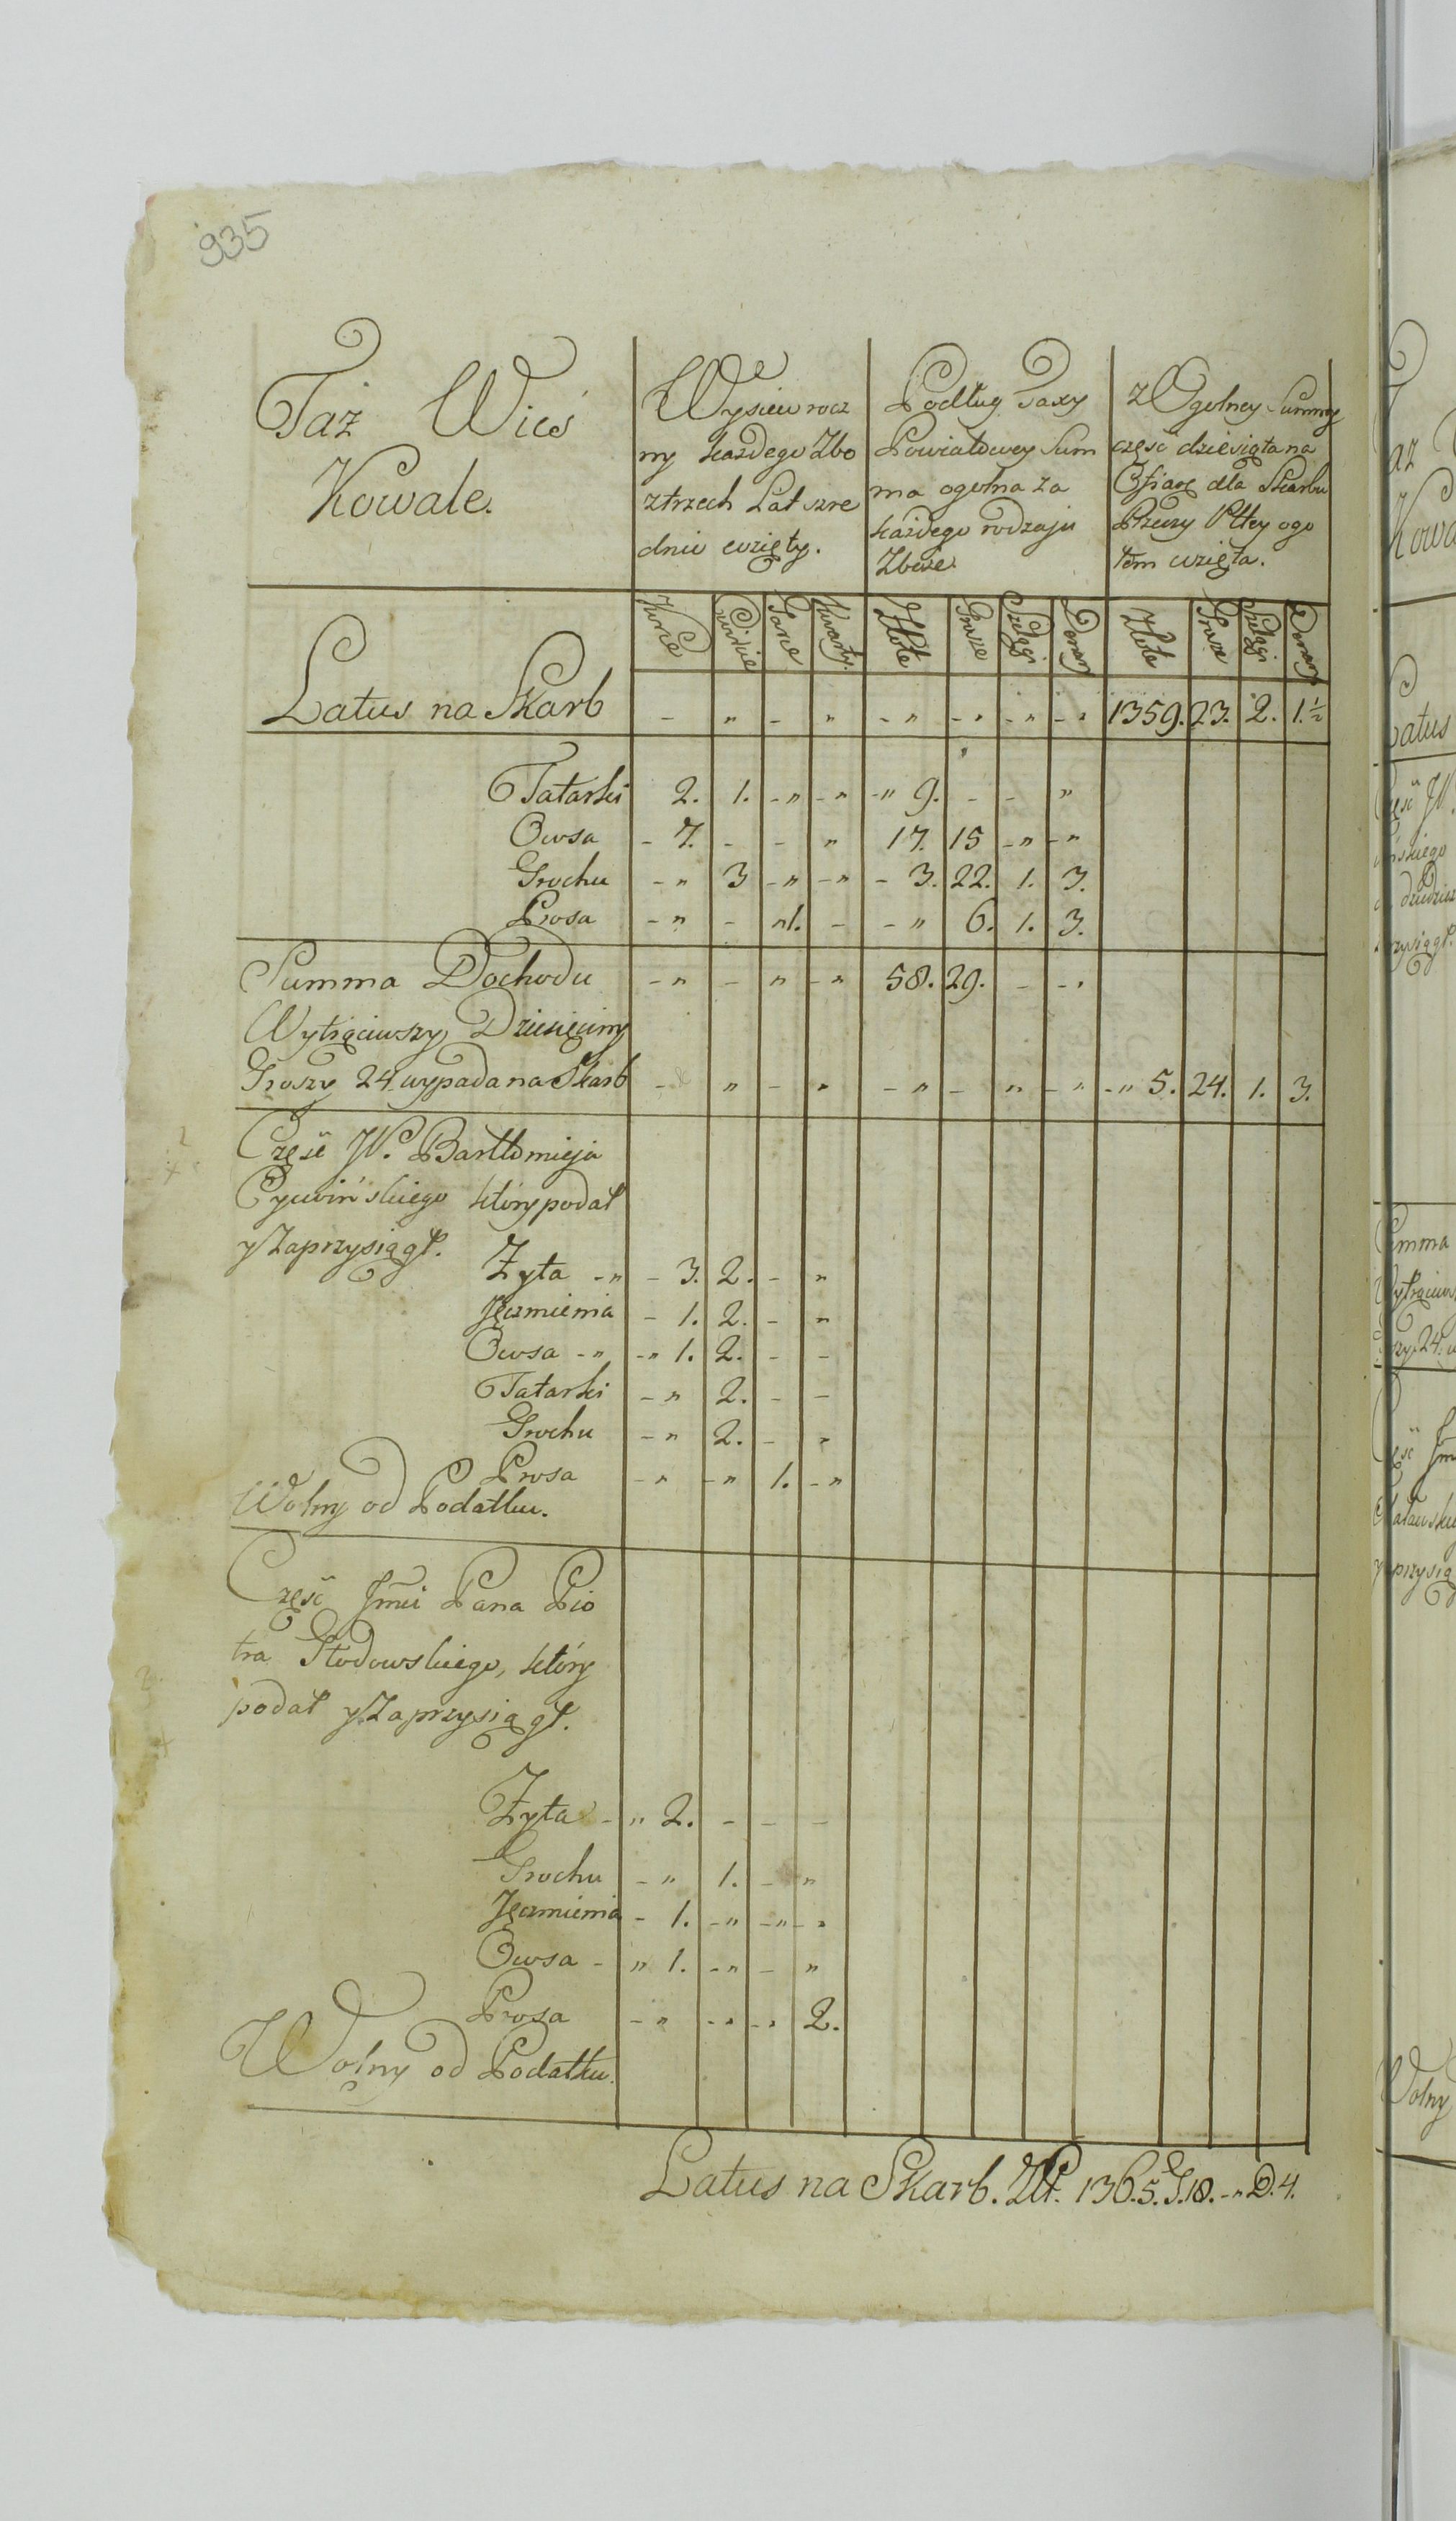 935
Taż Wieś
Kowale.
Wysiew rocz
ny każdego Zbo
z trzech Lat szre
dnio wzięty.
Podług Taxy
Powiatowey Sum
ma ogolna za
każdego rodzaju
Zboże
z Ogolney Summy
część dziesiąta na
Ofiarę dla Skarbu
Przeszy Pltey ogo
łem wzięta.
Korce Cwircie Garce Kwarty. Złote Grosze Szelągi Denary Złote Grosze Szelągi Denary
Latus na Skarb - " - " - " - " - " - " 1359. 23. 2. 1. ½
Tatarki 2. 1. - " - " - " 9. - - "
Owsa - 7. - - " 17. 15 - " - "
Grochu - " 3 - " - " - 3. 22. 1. 3.
Prosa - " - " 1. - - " 6. 1. 3.
Summa Dochodu - " - " - " 58. 29. - - "
Wytrąciwszy Dziesięciny
Groszy 24 wypada na Skarb - " - " - " - " - " - " 5. 24. 1. 3.
Część JP. Bartłomieja
Cywińskiego który podał
y Zaprzysiągł.
Zyta - " - 3. 2. - "
Jęczmienia - 1. 2. - "
Owsa - " - " 1. 2. - -
Tatarki - " 2. - -
Grochu - " 2. - "
Prosa - " - " 1. - "
Wolny od Podatku.
Część Jmci Pana Pio
tra Słodowskiego, który
podał y Zaprzysiągł.
Zyta - " 2. - - -
Grochu - " 1. - "
Jęczmienia - 1. - " - " - "
Owsa - " 1. - " - "
Prosa - " - " - " 2.
Wolny od Podatku.
Latus na Skarb. Złt. 136.5. G. 18. - " D. 4.